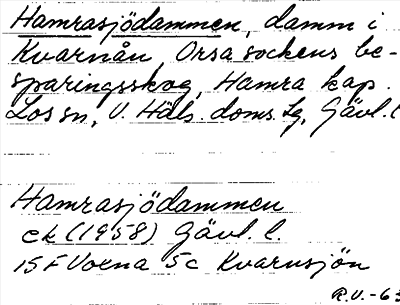 Hamrasjödammen, damm i
Kvarnån, Orsa sockens be-
sparingsskog, Hamra kap.
Los sn, V. Häls. doms. tg, Gävl. l
Hamrasjödammen
ek (1958) Gävl. l.
15 F Voxna 5c Kvarnsjön
R.V.-63